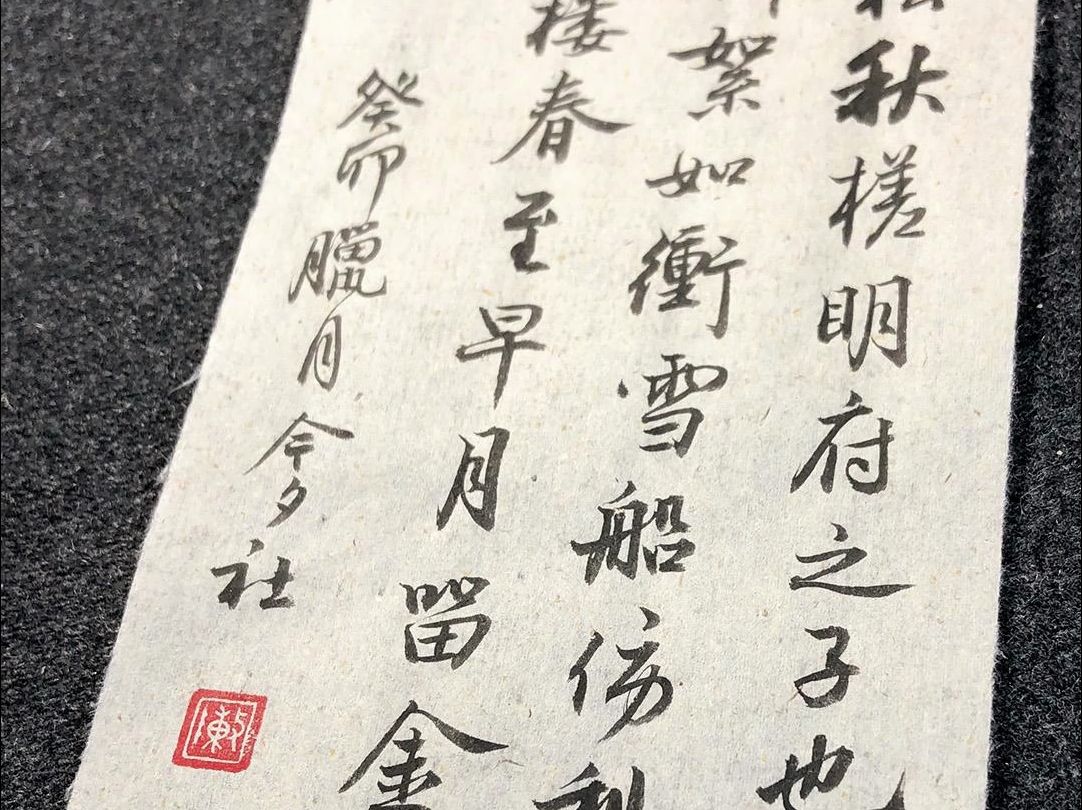 秋槎明府之子也
絮如衝雪船傍利
楼春至早月留金
癸卯臘月今夕社